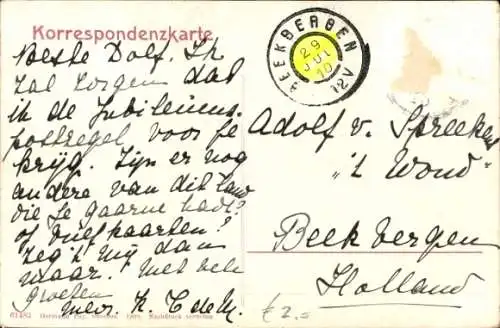 Korrespondenzkarte
Beste Dolf. Ik
zal zorgen dat
ik de Jubileums-
postzegel voor je
krijg. Zijn er nog
andere van dit land
die je gaarne hadt?
of briefkaarten?
Zeg 't mij dan
maar. Met vele
groeten
BEEKBERGEN
29
JUL
10
12V
Adolf v. Spreeken
"'t Woud"
Beekbergen
Holland
61482
€ 2.-